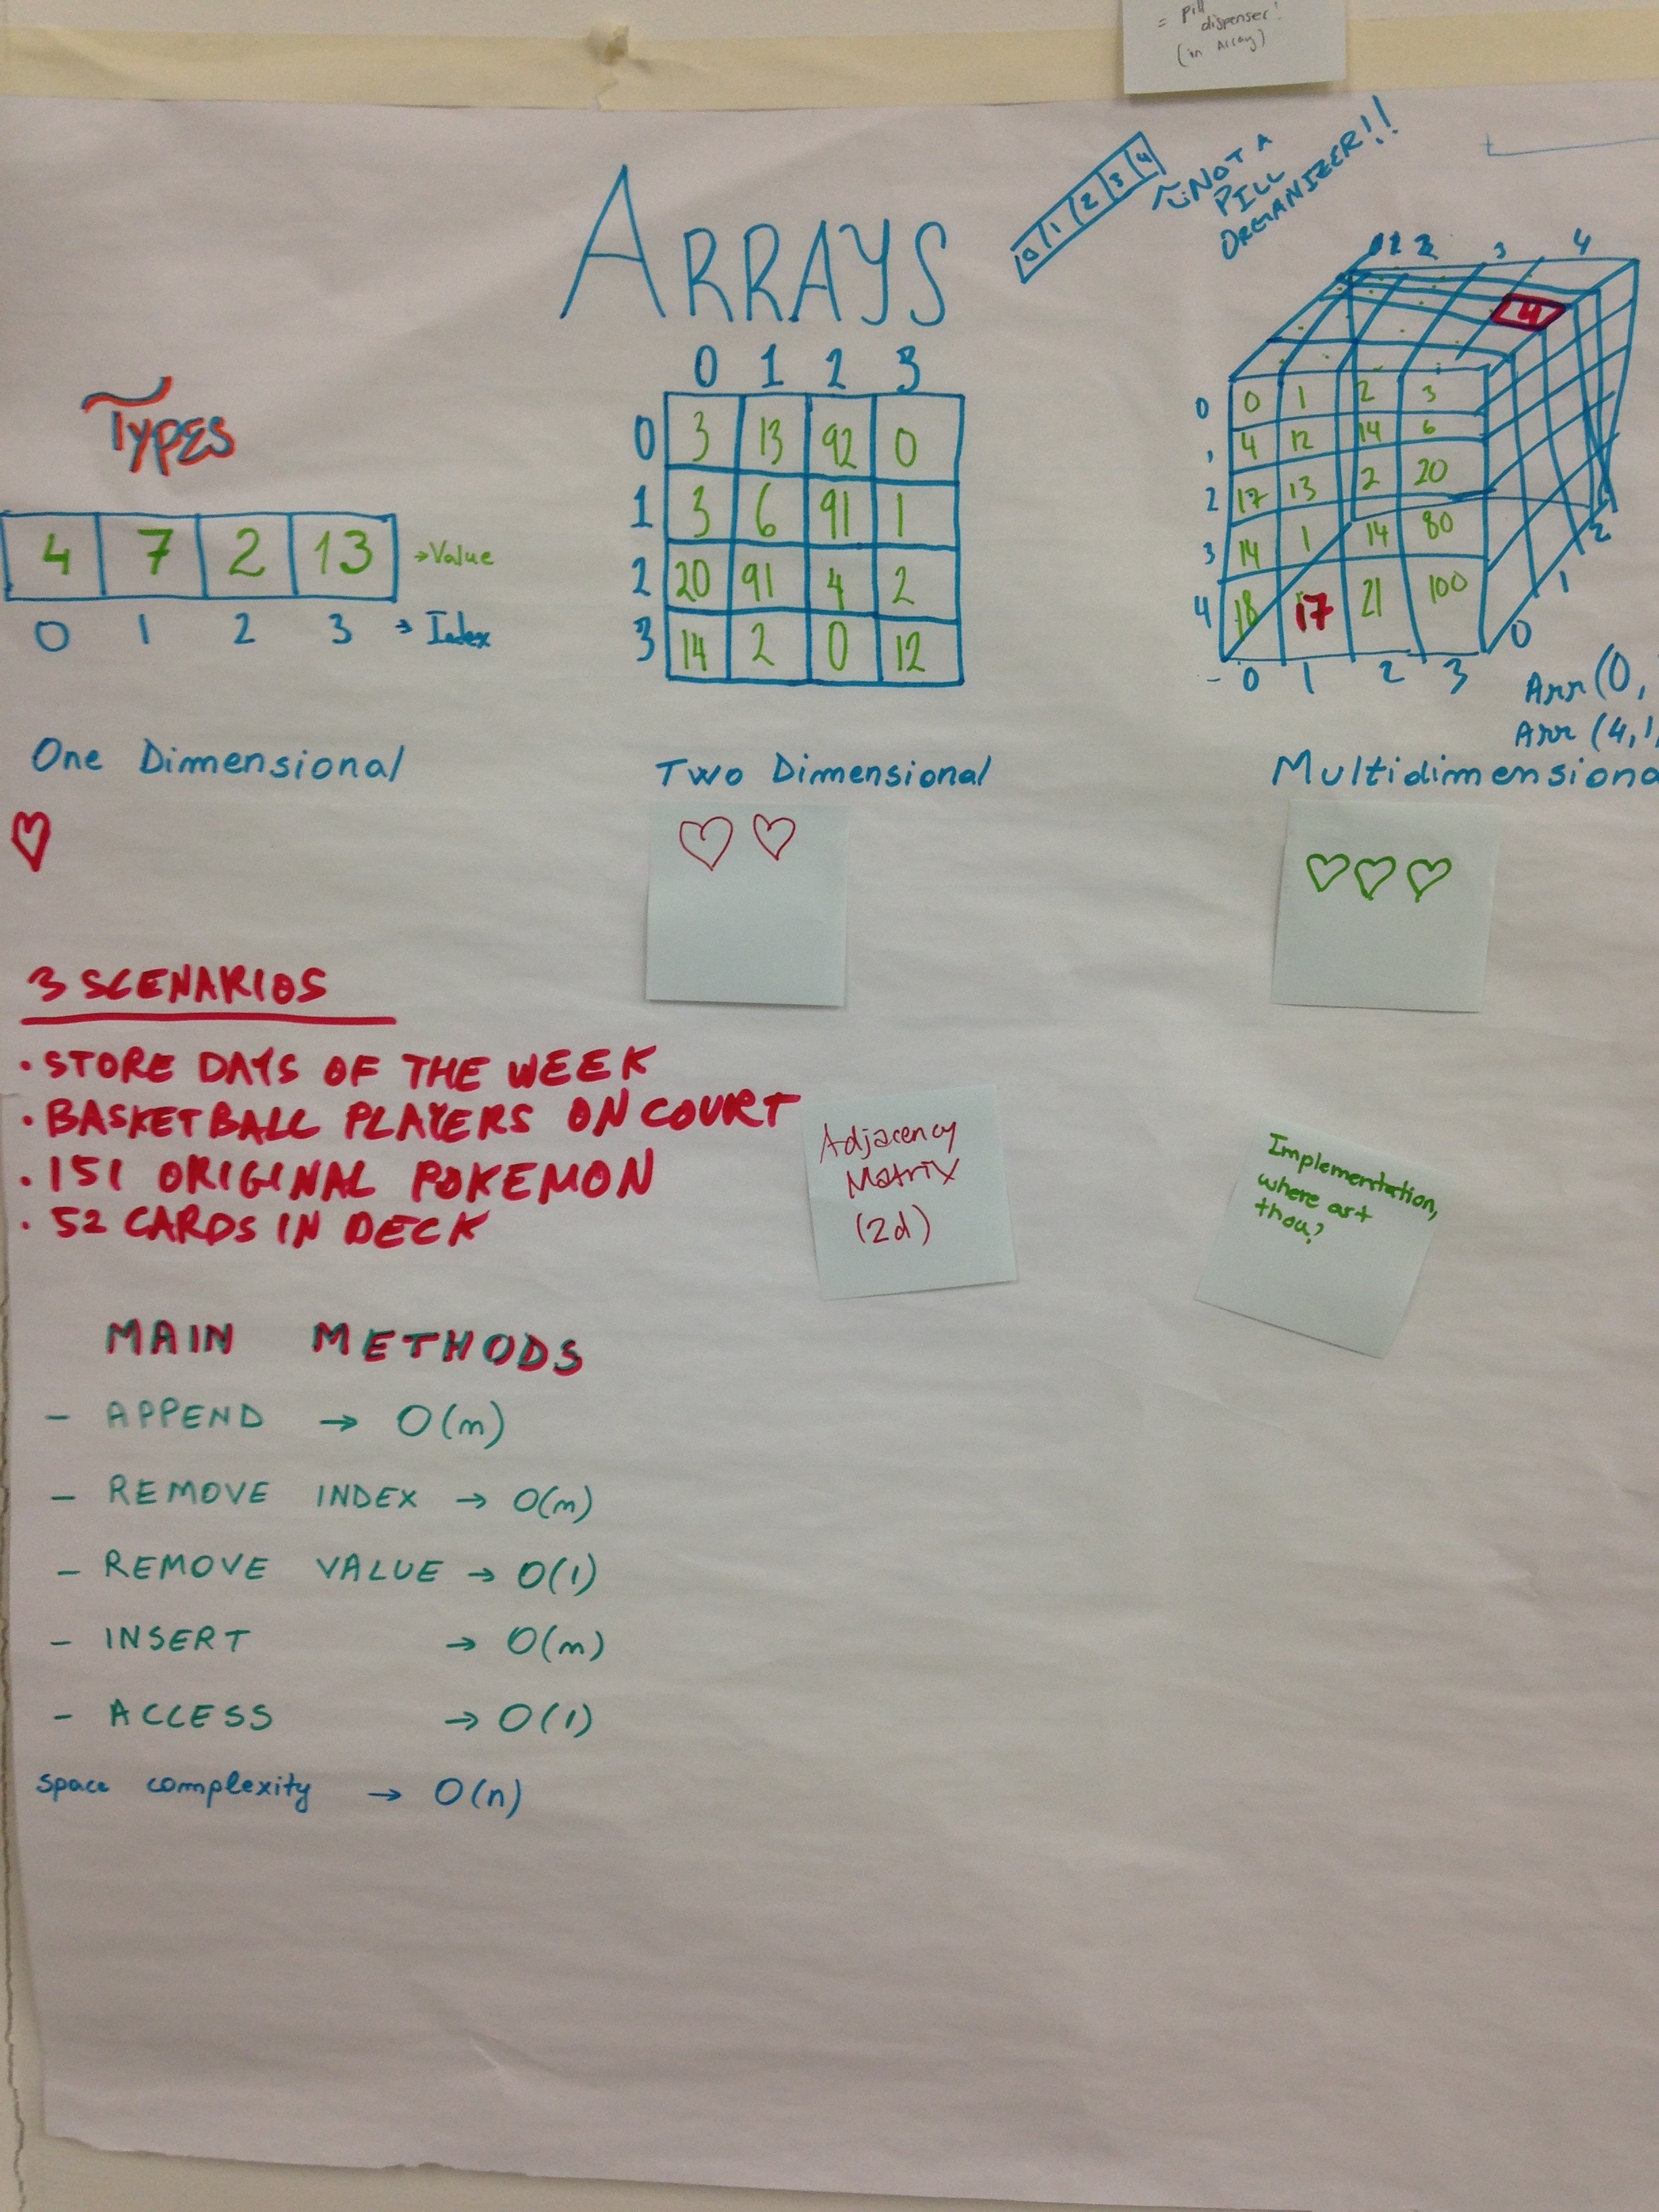 = Pill
dispenser!
(in Array)
NOT A
PILL
ORGANIZER!!
0 1 2 3 4
ARRAYS
TYPES
4 7 2 13 → Value
0 1 2 3 → Index
One Dimensional
0 1 2 3
0 3 13 92 0
1 3 6 91 1
2 20 91 4 2
3 14 2 0 12
Two Dimensional
3 4
4
0 0 1 2 3
4 12 14 6
2 17 13 2 20
3 14 1 14 80
4 18 17 21 100
0 1 2
0 1 2 3
Arr (0,
Arr (4,1,
Multidimensiona
3 SCENARIOS
• STORE DAYS OF THE WEEK
• BASKETBALL PLAYERS ON COURT
• 151 ORIGINAL POKEMON
• 52 CARDS IN DECK
Adjacency
Matrix
(2d)
Implementation,
where art
thou?
MAIN METHODS
- APPEND → O(n)
- REMOVE INDEX → O(n)
- REMOVE VALUE → O(1)
- INSERT → O(n)
- ACCESS → O(1)
space complexity → O(n)